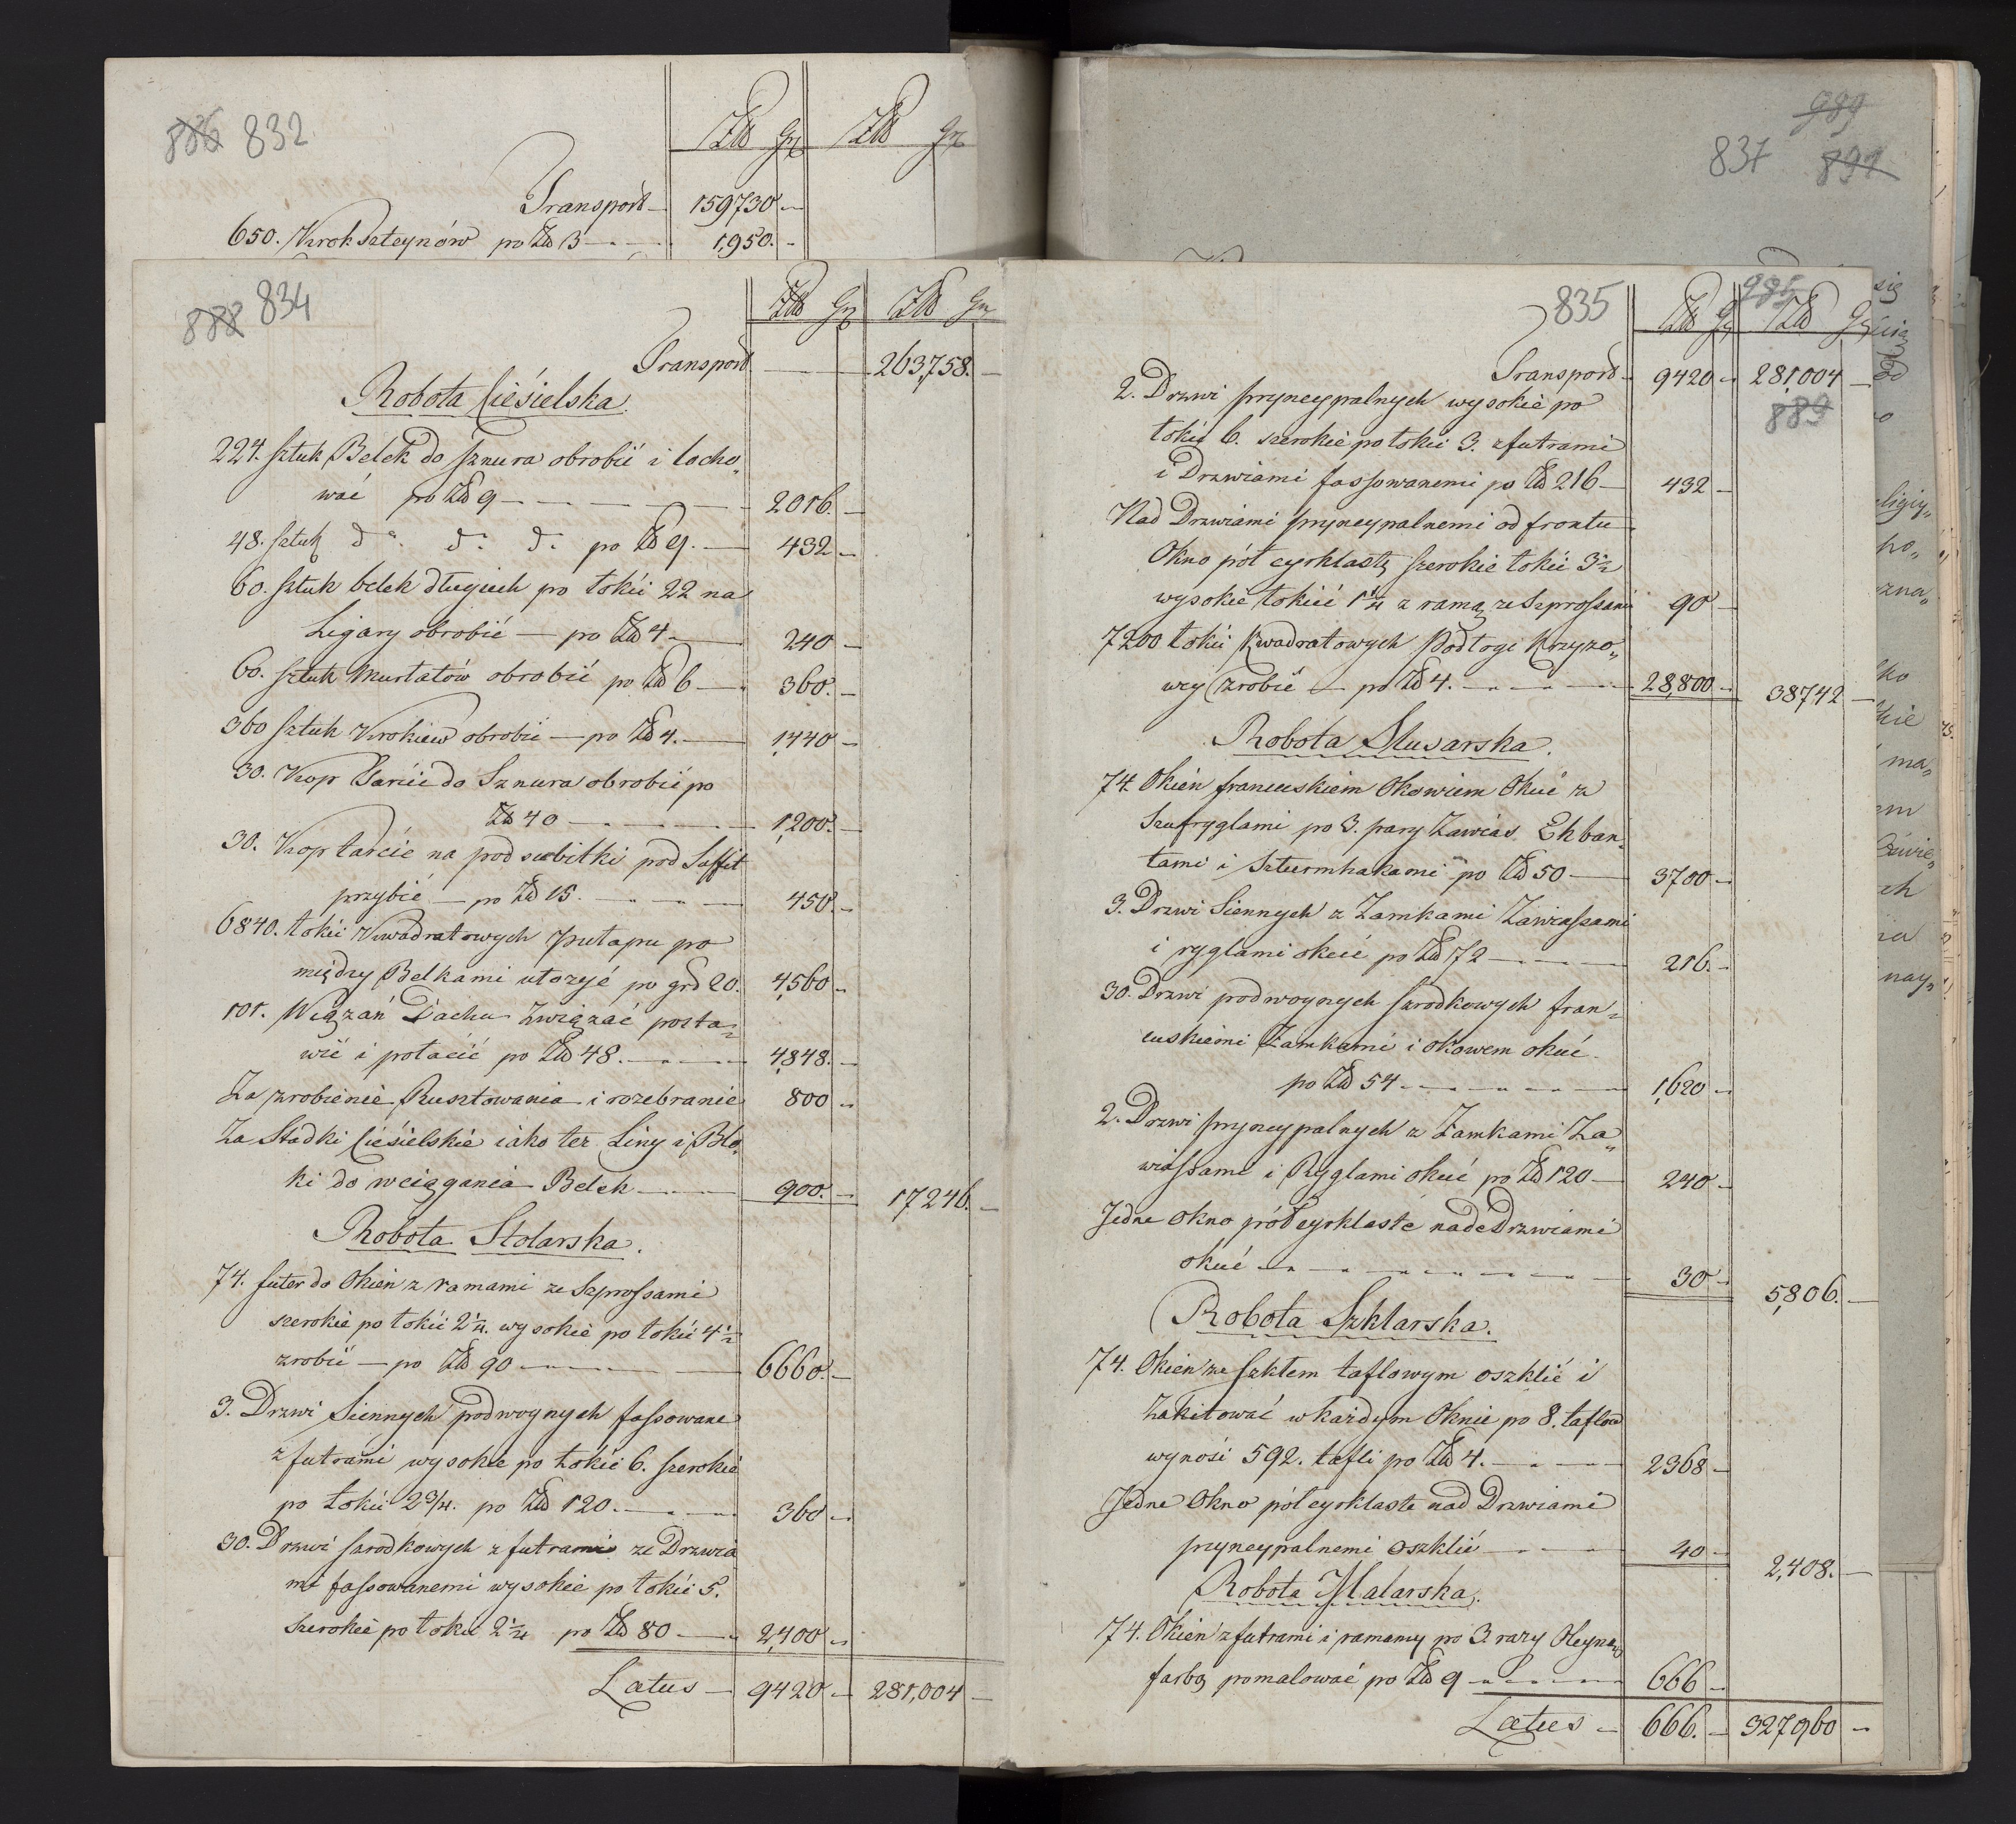 886 832
Złd Gr Złd Gr
Transport — 159730 —
650. Kroksteynów po Złd 3 — 1,950. —
888 834
Złd Gr Złd Gr
Transport — 263,758. —
Robota Ciésielska.
224. sztuk Belek do sznura obrobić i locho„
wać po Złd 9 — 2016. —
48. sztuk do. do. do. po Złd 9. — 432 —
60. sztuk belek długich po łokci 22 na
Legary obrobić — po Złd 4 — 240 —
60. sztuk Murłatów obrobić po Złd 6 — 360. —
360 sztuk Krokiew obrobić — po Złd 4. — 1,440 —
30. Kop Tarcic do Sznura obrobić po
Złd 40 — 1,200. —
30. Kop tarcic na podsubitki pod Suffit
przybić — po Złd 15. — 450. —
6840. łokci Kwadratowych putapu po
między Belkami ułozyć po grd 20. 4,560 —
101. Wiązań Dachu Związać posta„
wić i połacić po Złd 48. — 4,848. —
Za zrobienie Rusztowania i rozebranie 800 —
Za Statki Ciésielskie iako też Liny i Blo„
ki do wciągania Belek — 900. — 17,246. —
Robota Stolarska.
74. futer do Okien z ramami ze Szprossami
szerokie po łokci 2 1/4. wysokie po łokci 4 1/2
zrobić — po Złd 90 — 6660. —
3. Drzwi Siennych podwoynych fassowane
z futrami wysokie po łokci 6. szerokie
po łokci 2 3/4. po Złd 120. — 360 —
30. Drzwi srodkowych z futrami ze Drzwia
mi fassowanemi wysokie po łokci 5.
szerokie po łokci 2 1/4 po Złd 80 — 2,400 —
Latus — 9420 — 281,004 —
989
837 891
835 985
Złd Gr Złd Gr
Transport — 9420 — 281,004 —
889
2. Drzwi pryncypalnych wysokie po
łokci 6. szerokie po łokci 3. z futrami
i Drzwiami fassowanemi po Złd 216 — 432 —
Nad Drzwiami pryncypalnemi od frontu
Okno pół cyrklastę szerokie łokci 3 1/2
wysokie łokci 1 3/4 z ramą ze Szprossami 90 —
7200 łokci Kwadratowych Podłogi Krzyzo„
wey zrobić — po Złd 4. — 28,800 — 38742 —
Robota Slusarska.
74. Okien francuskiem Okowiem Okuć z
Szufryglami po 3. pary Zawias Ekban„
tami i Szturmhakami po Złd 50 — 3700 —
3. Drzwi Siennych z Zamkami Zawiassami
i ryglami okuć po Złd 72 — 216. —
30. Drzwi podwoynych srodkowych fran„
cuskiemi Zamkami i okowem okuć.
po Złd 54 — 1,620 —
2. Drzwi pryncypalnych z Zamkami Za„
wiassami i Ryglami okuć po Złd 120 — 240 —
Jedne okno pół cyrklaste nade Drzwiami
okuć — 30 — 5,806. —
Robota Szklarska.
74. Okien ze Szkłem taflowym oszklić i
Zakitować w każdym Oknie po 8. taflow
wynosi 592. tafli po Złd 4. — 2368 —
Jedne Okno pół cyrklaste nad Drzwiami
pryncypalnemi oszklić — 40 — 2,408. —
Robota Malarska.
74. Okien z futrami i ramamy po 3. razy Oleyną
farbą pomalować po Złd 9 — 666 —
Latus — 666. — 327,960 —